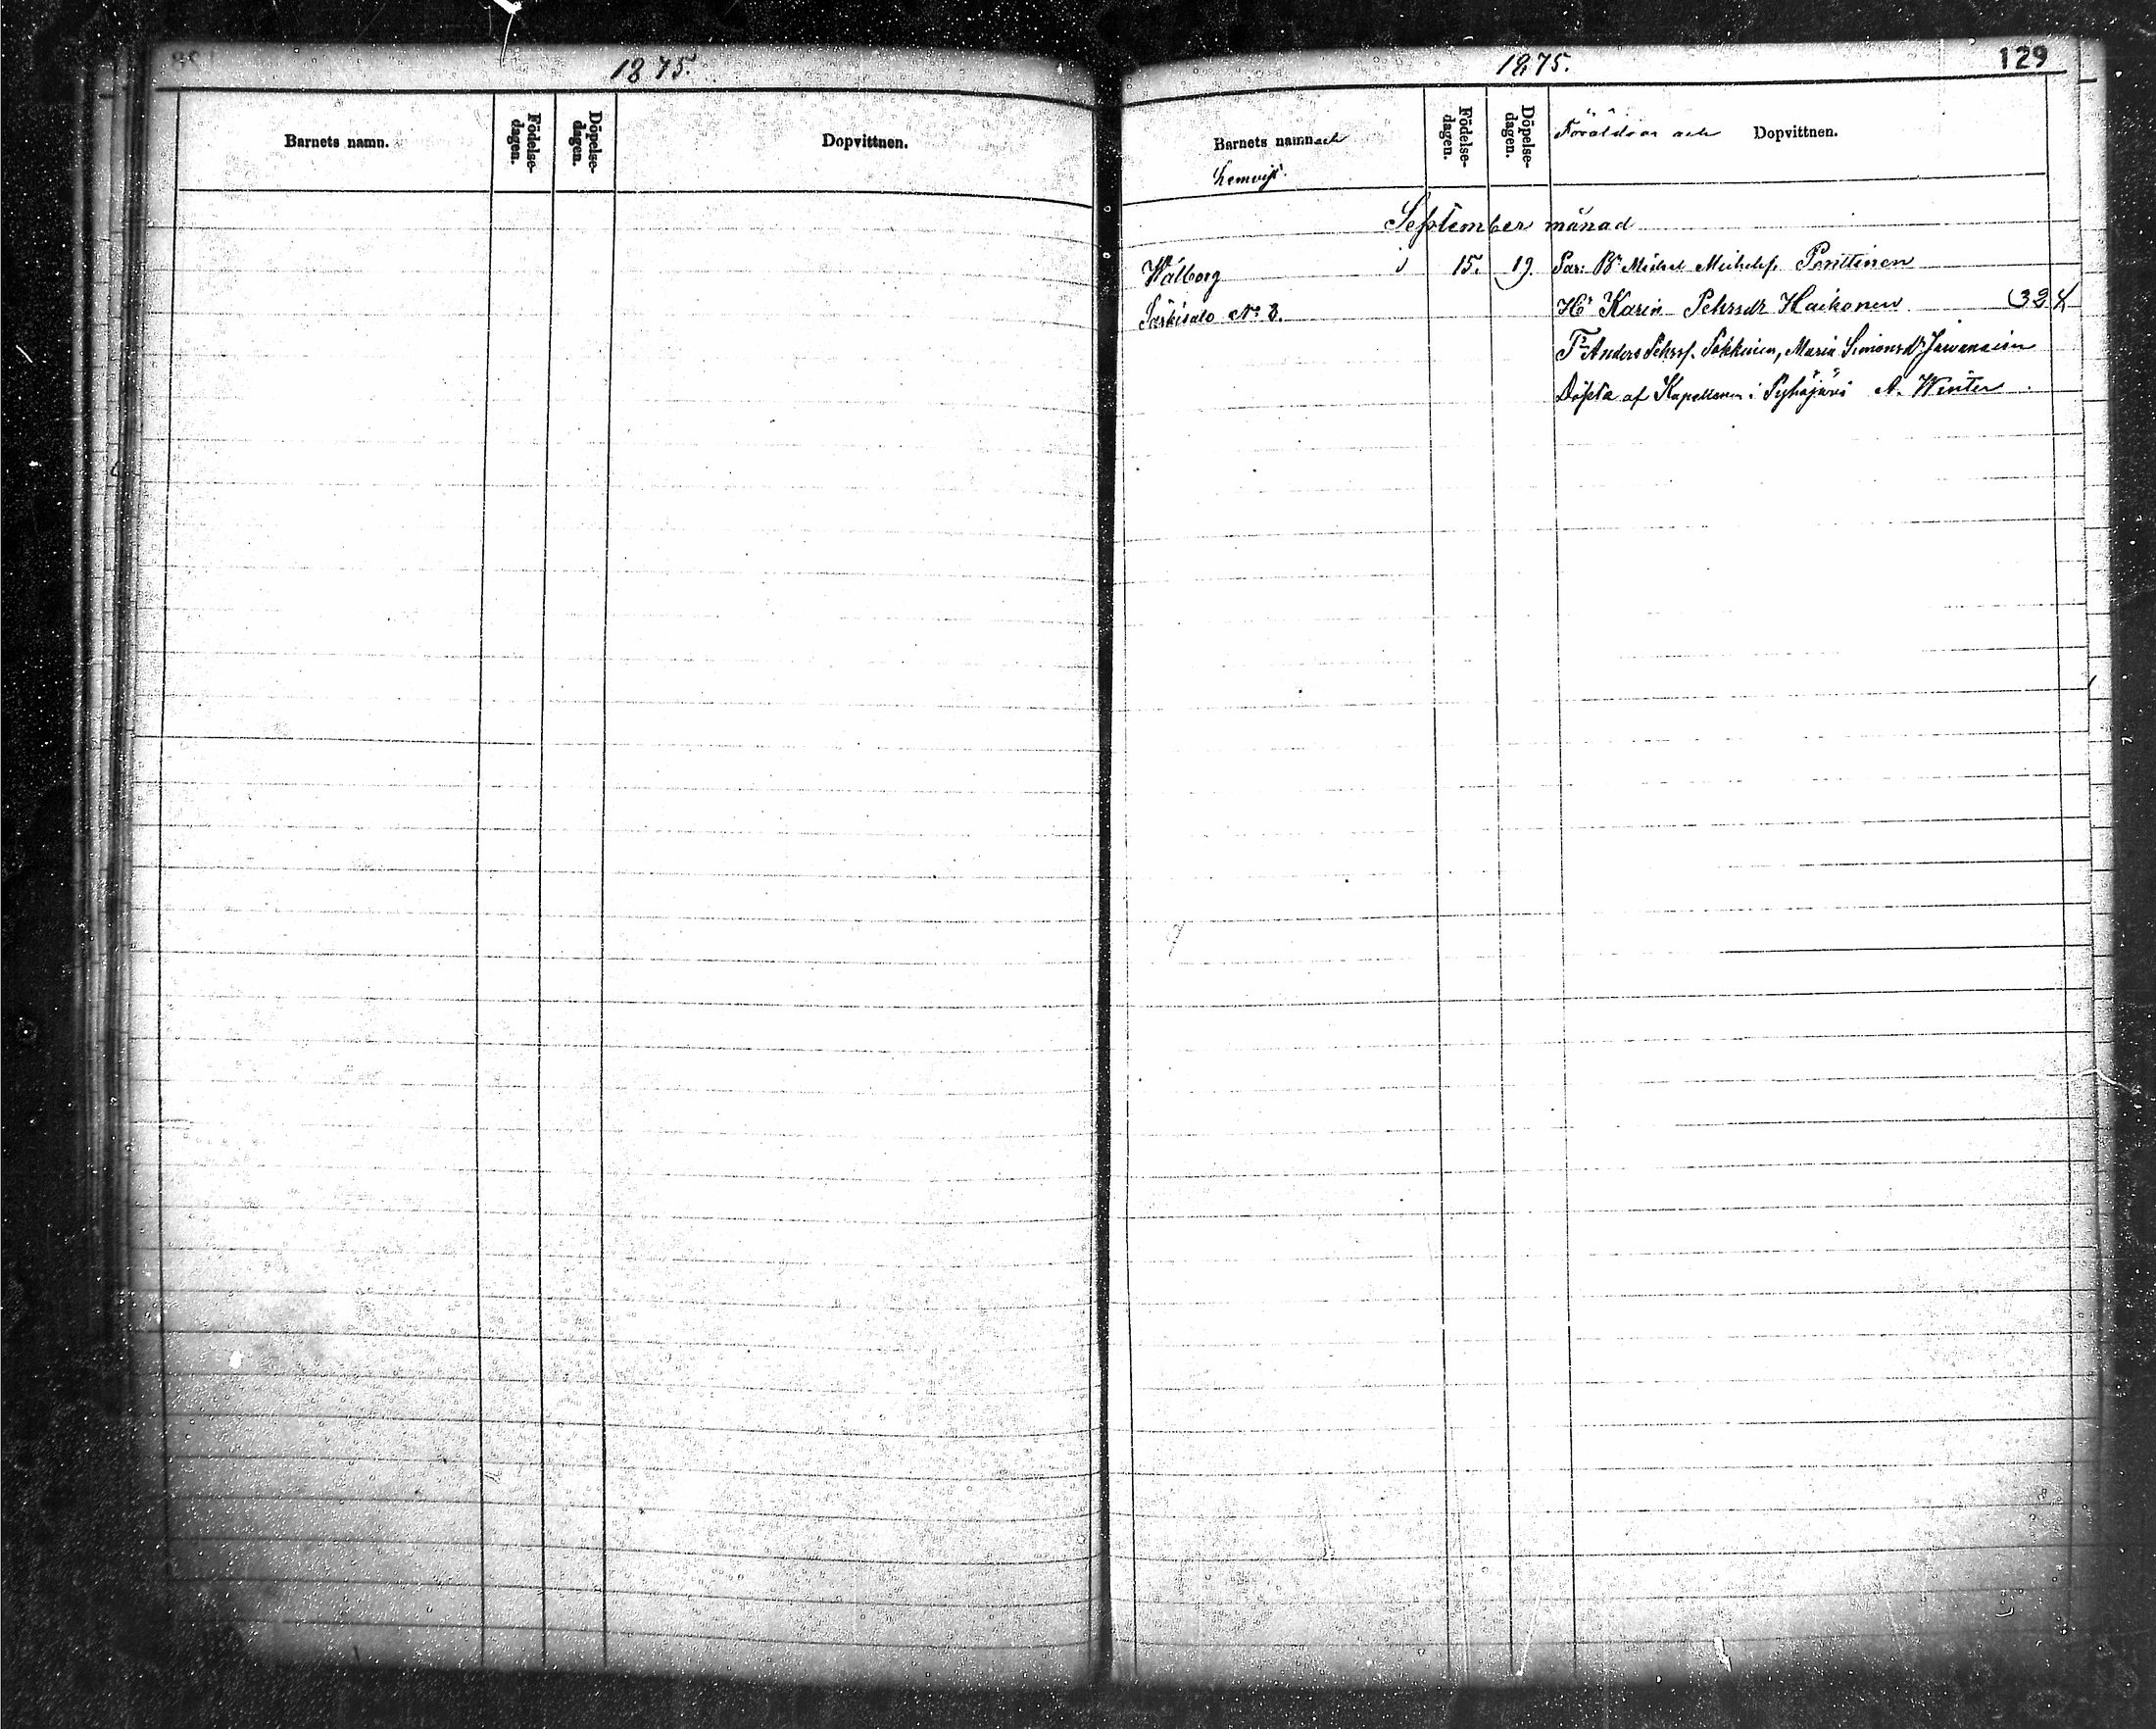 1875.
Barnets namn.
Födelse-dagen.
Döpelse-dagen.
Dopvittnen.
1875.
129
Barnets namn och hemvist.
Födelse-dagen.
Döpelse-dagen.
Föräldrar och Dopvittnen.
September månad
Wålborg 15. 19. Par: Bn Michel Michelss. Ponttinen
Särkisalo No 8. Hu Karin Pehrsdr Haikonen 334
Tn Anders Pehrss. Pokkinen, Maria Simonsdr Järvenäinen
Döpta af Kapellanen i Pyhäjärvi A. Winter